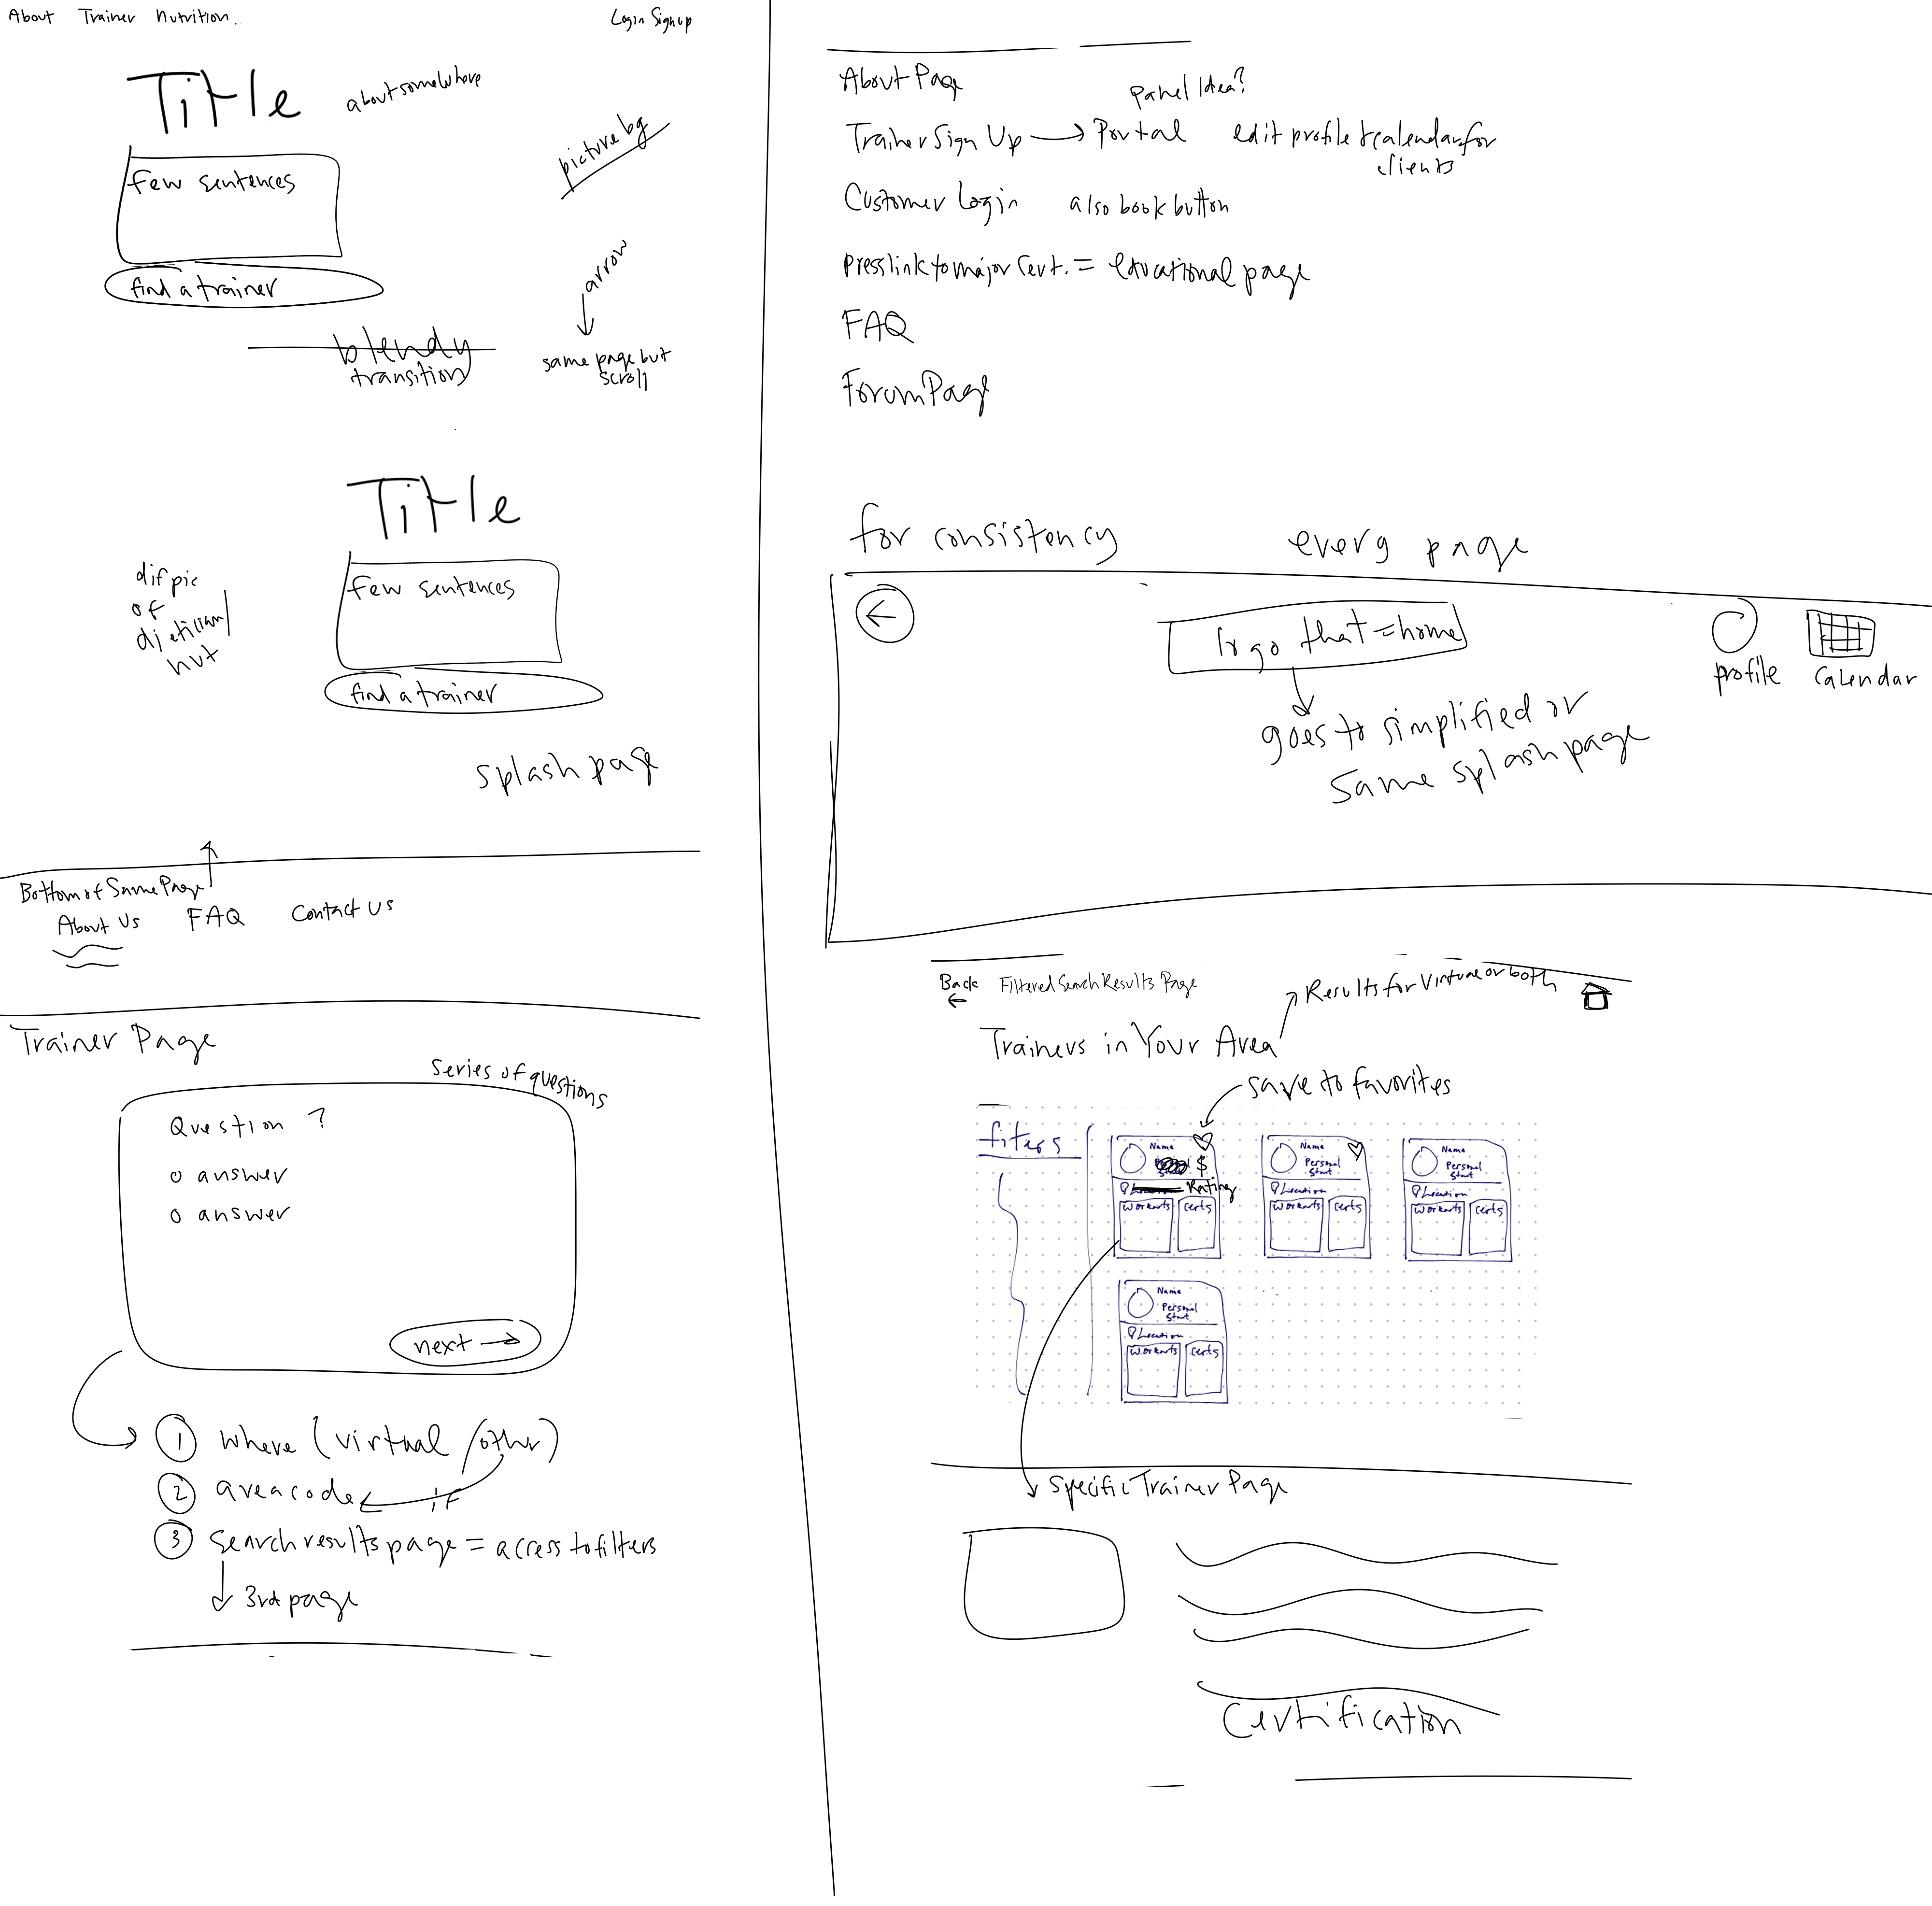 About Trainer Nutrition.
Login Signup
Title
about somewhere
picture bg
few sentences
find a trainer
arrow
blendy
transition
same page but
scroll
Title
few sentences
find a trainer
dif pic
of
dietician/
nut
splash page
Bottom of Same Page
About Us FAQ Contact Us
Trainer Page
Series of questions
Question ?
o answer
o answer
next →
1 where (virtual /other)
2 area code if
3 search results page = access to filters
3rd page
About Page
panel Idea?
Trainer Sign Up → Portal edit profile & calendar for
clients
Customer Login also book button
press link to major Cert. = educational page
FAQ
Forum Page
for consistency every page
←
logo that = home
profile calendar
goes to simplified or
same splash page
Back
←
Filtered Search Results Page
Results for Virtual or both
Trainers in Your Area
save to favorites
fiters
Name
$
Rating
workouts certs
Name
Personal
Stmt
Location
workouts certs
Name
Personal
Stmt
Location
workouts certs
Name
Personal
Stmt.
Location
workouts certs
Specific Trainer Page
Certification